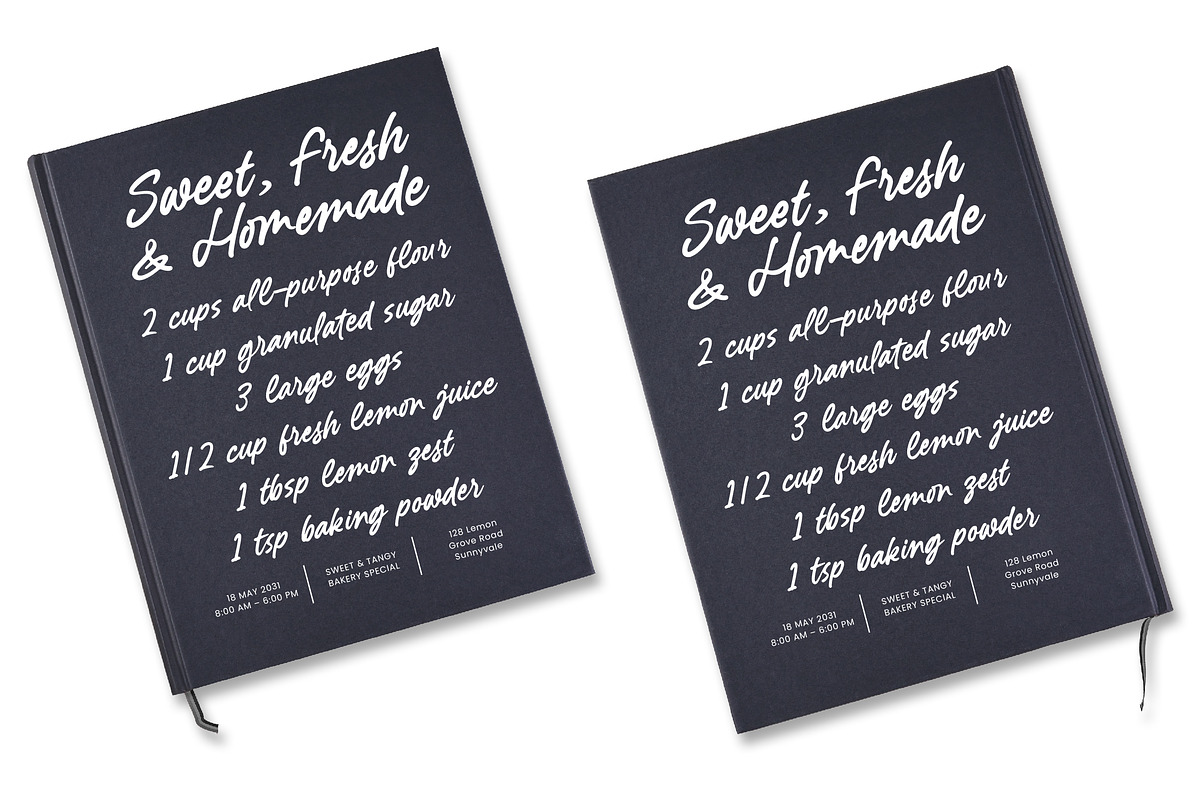 Sweet, Fresh
& Homemade
2 cups all-purpose flour
1 cup granulated sugar
3 large eggs
1/2 cup fresh lemon juice
1 tbsp lemon zest
1 tsp baking powder
18 MAY 2031
8:00 AM – 6:00 PM
SWEET & TANGY
BAKERY SPECIAL
128 Lemon
Grove Road
Sunnyvale
Sweet, Fresh
& Homemade
2 cups all-purpose flour
1 cup granulated sugar
3 large eggs
1/2 cup fresh lemon juice
1 tbsp lemon zest
1 tsp baking powder
18 MAY 2031
8:00 AM – 6:00 PM
SWEET & TANGY
BAKERY SPECIAL
128 Lemon
Grove Road
Sunnyvale